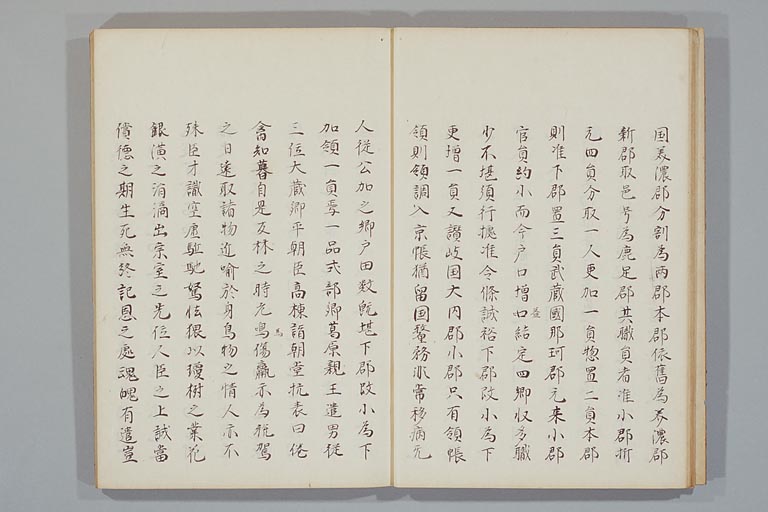 国美濃郡分割為両郡本郡依舊為美濃郡
新郡取邑号為鹿足郡其職員者准小郡析
元四員分取一人更加一員惣置二員本郡
則准下郡置三員武藏國那珂郡元来小郡
官員約小而今戸口増益口結定四郷収多職
少不堪須行擾准令條誠裕下郡改小為下
更増一員又讃岐国大内郡小郡只有領帳
領則領調入京帳猶留国釐務非常移病
人従公加之郷戸田数既堪下郡改小為下
加領一員焉一品式部卿葛原親王遣男従
三位大藏卿平朝臣高棟詣朝堂抗表曰倦
禽知暮自是反林之時老馬鳴傷羸亦為脱駕
之日遠取諸物近喩於身鳥物之情人亦不
殊臣才識空虚駈馳駑怯猥以瓊樹之葉花
銀潢之涓滴出宗室之先位人臣之上誠當
償徳之期生死無終記恩之處魂魄有遣豈